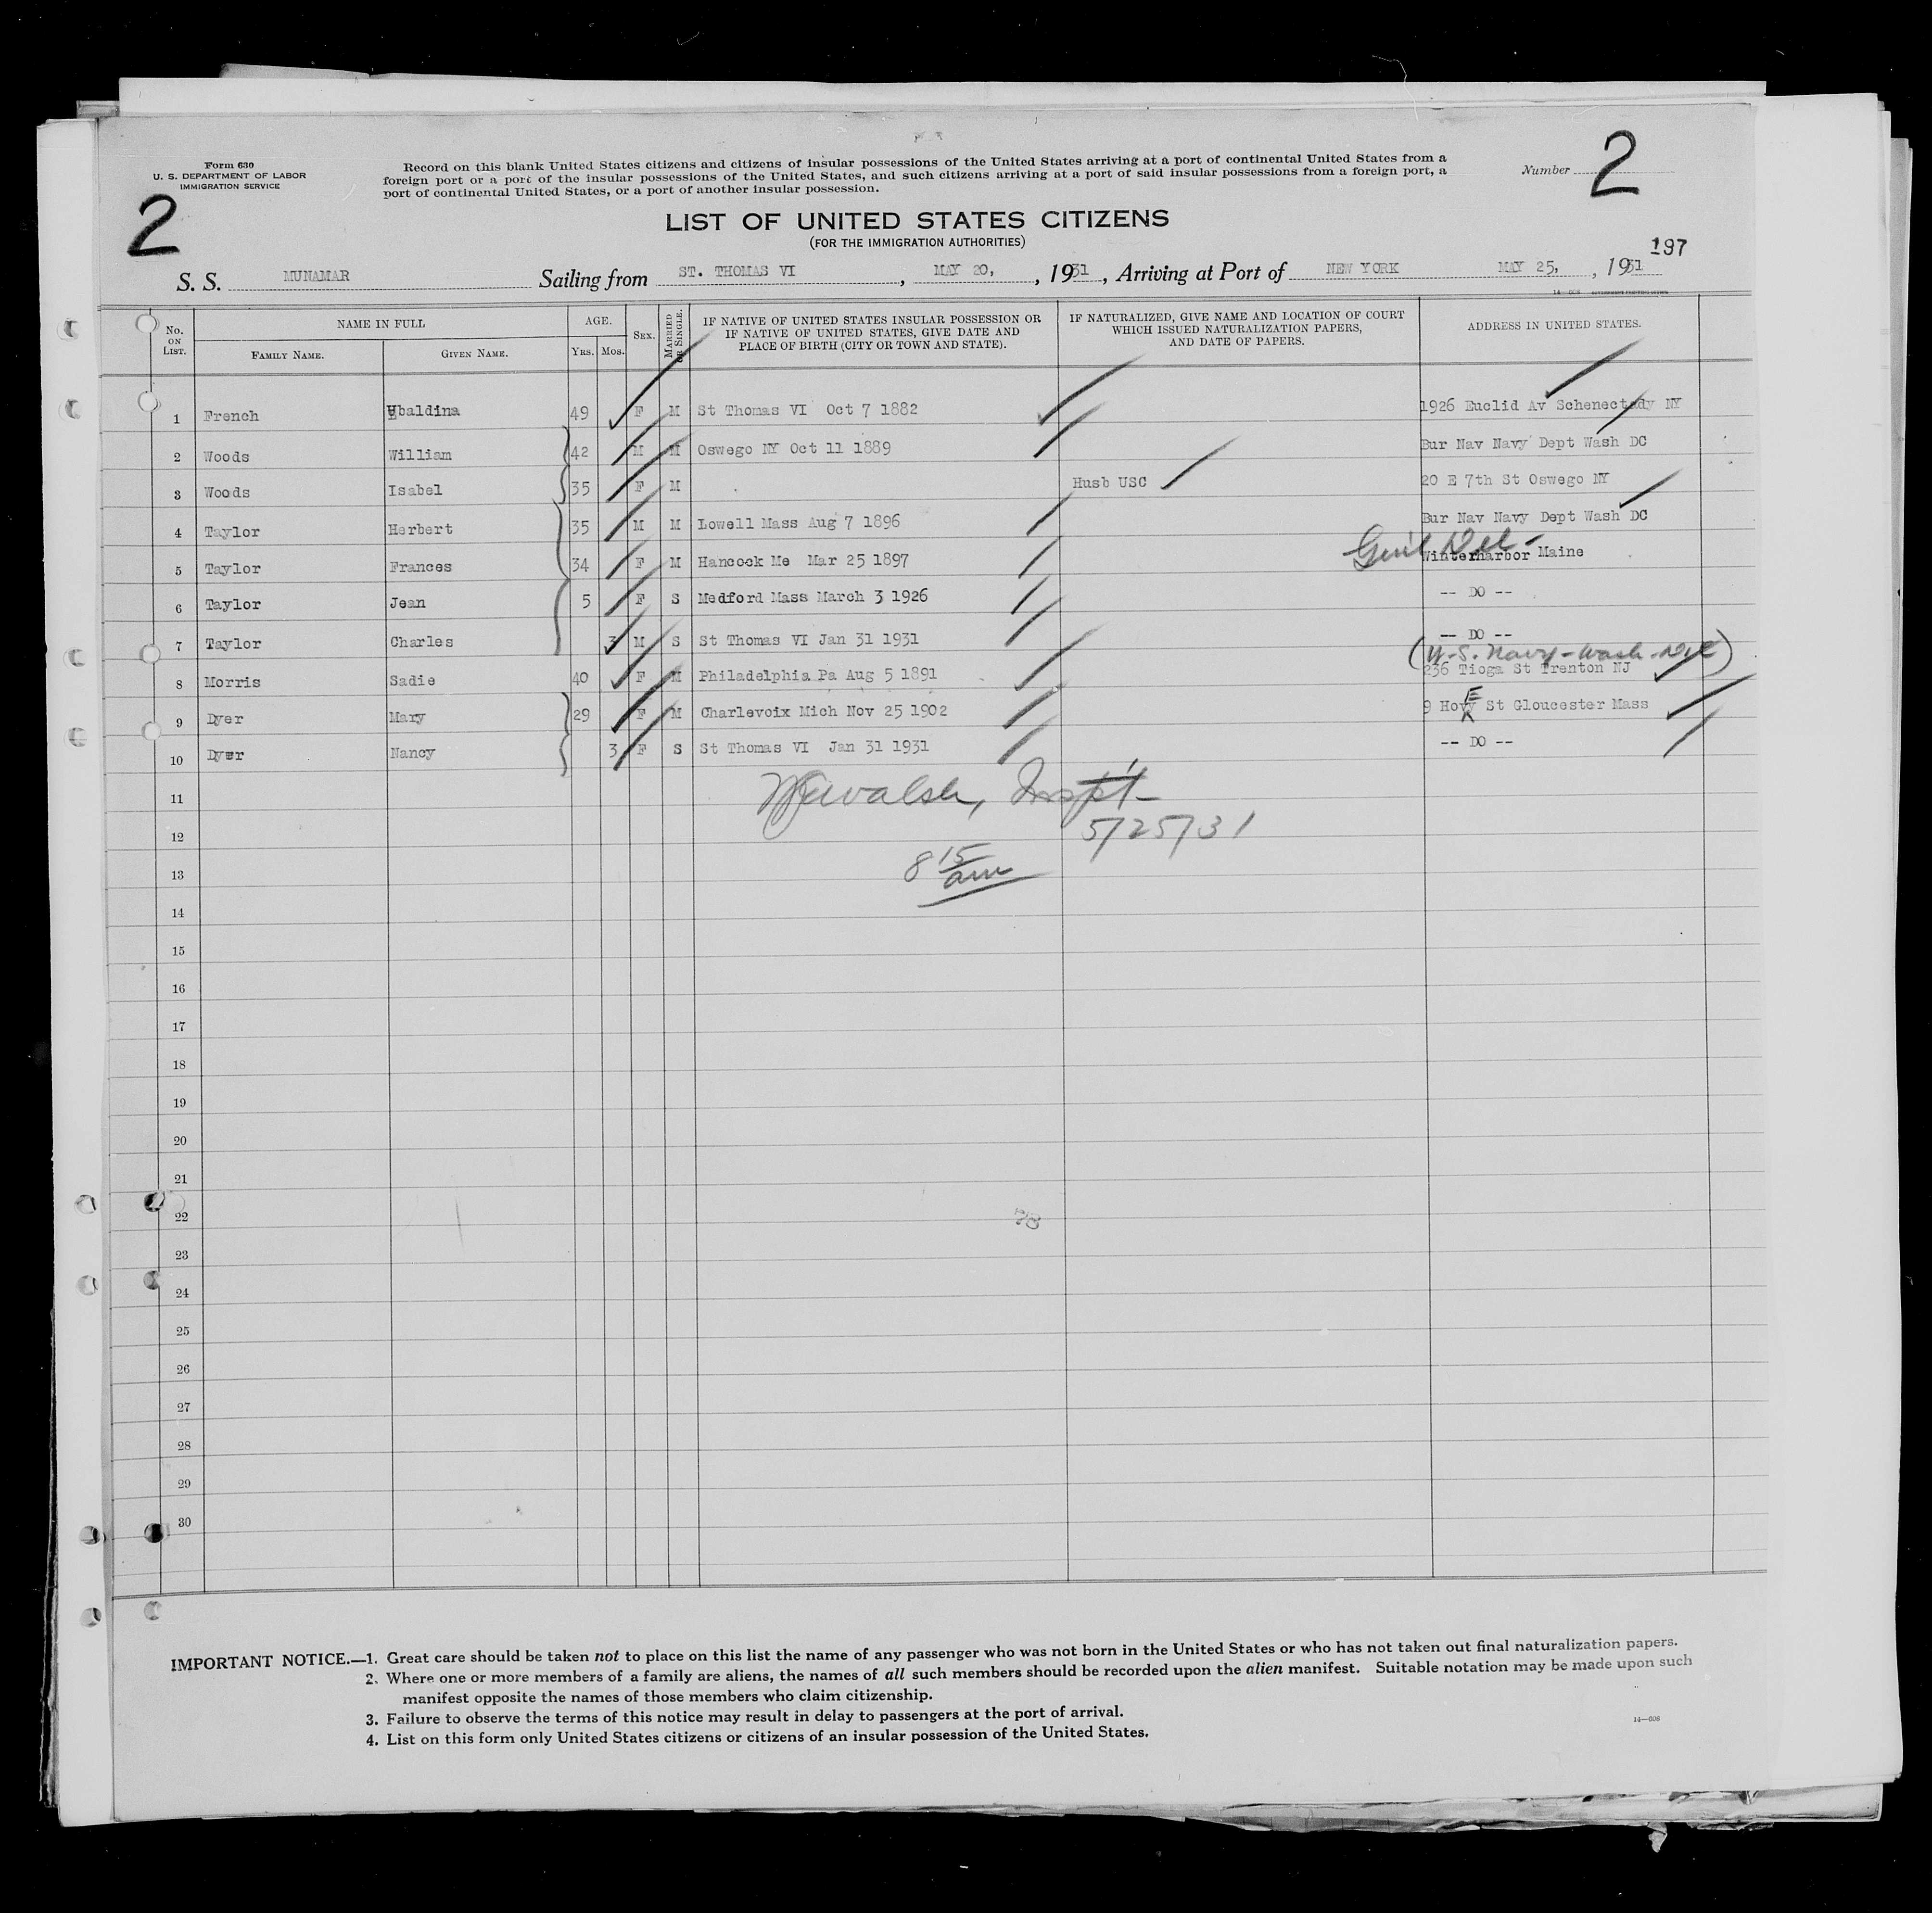 Form 630
U. S. DEPARTMENT OF LABOR
IMMIGRATION SERVICE
Record on this blank United States citizens and citizens of insular possessions of the United States arriving at a port of continental United States from a
foreign port or a port of the insular possessions of the United States, and such citizens arriving at a port of said insular possessions from a foreign port, a
port of continental United States, or a port of another insular possession.
Number 2
2
LIST OF UNITED STATES CITIZENS
(FOR THE IMMIGRATION AUTHORITIES)
197
S. S. MUNAMAR Sailing from ST. THOMAS VI, MAY 20, 1931, Arriving at Port of NEW YORK MAY 25, 1931
No. ON LIST. NAME IN FULL FAMILY NAME. GIVEN NAME. AGE. YRS. MOS. SEX. MARRIED OR SINGLE.
IF NATIVE OF UNITED STATES INSULAR POSSESSION OR
IF NATIVE OF UNITED STATES, GIVE DATE AND
PLACE OF BIRTH (CITY OR TOWN AND STATE).
IF NATURALIZED, GIVE NAME AND LOCATION OF COURT
WHICH ISSUED NATURALIZATION PAPERS,
AND DATE OF PAPERS.
ADDRESS IN UNITED STATES.
1 French Ubaldina 49 F M St Thomas VI Oct 7 1882 1926 Euclid Av Schenectady NY
2 Woods William 42 M M Oswego NY Oct 11 1889 Bur Nav Navy Dept Wash DC
3 Woods Isabel 35 F M Husb USC 20 E 7th St Oswego NY
4 Taylor Herbert 35 M M Lowell Mass Aug 7 1896 Bur Nav Navy Dept Wash DC
Gen'l Del -
5 Taylor Frances 34 F M Hancock Me Mar 25 1897 Winterharbor Maine
6 Taylor Jean 5 F S Medford Mass March 3 1926 -- DO --
7 Taylor Charles 3 M S St Thomas VI Jan 31 1931 -- DO --
(U.S. Navy - Wash - )
8 Morris Sadie 40 F M Philadelphia Pa Aug 5 1891 236 Tioga St Trenton NJ
9 Dyer Mary 29 F M Charlevoix Mich Nov 25 1902 9 Hovey St Gloucester Mass
10 Dyer Nancy 3 F S St Thomas VI Jan 31 1931 -- DO --
11
Walsh, Insp't -
12
5/25/31
13
8 15 am
14
15
16
17
18
19
20
21
22
23
24
25
26
27
28
29
30
IMPORTANT NOTICE.—1. Great care should be taken not to place on this list the name of any passenger who was not born in the United States or who has not taken out final naturalization papers.
2. Where one or more members of a family are aliens, the names of all such members should be recorded upon the alien manifest. Suitable notation may be made upon such
manifest opposite the names of those members who claim citizenship.
3. Failure to observe the terms of this notice may result in delay to passengers at the port of arrival.
4. List on this form only United States citizens or citizens of an insular possession of the United States.
14—608